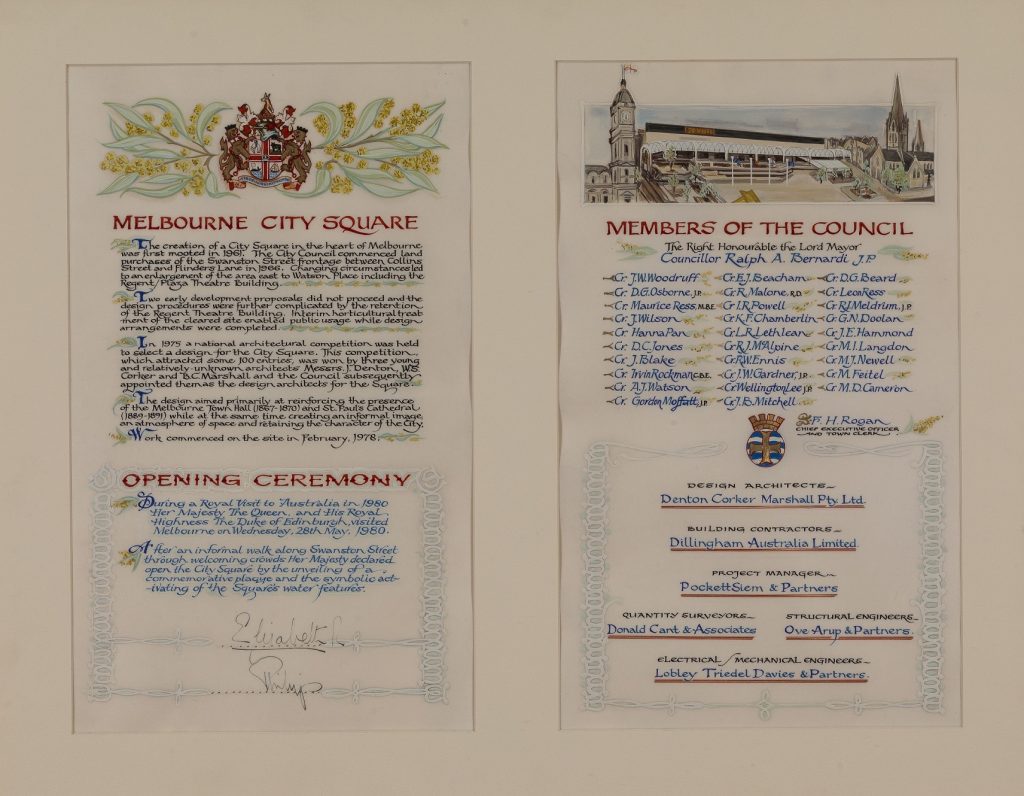 MELBOURNE CITY SQUARE
The creation of a City Square in the heart of Melbourne
was first mooted in 1961. The City Council commenced land
purchases of the Swanston Street frontage between Collins
Street and Flinders Lane in 1966. Changing circumstances led
to an enlargement of the area east to Watson Place including the
Regent/Plaza Theatre Building.
Two early development proposals did not proceed and the
design procedures were further complicated by the retention
of the Regent Theatre Building. Interim horticultural treat-
ment of the cleared site enabled public usage while design
arrangements were completed.
In 1975 a national architectural competition was held
to select a design for the City Square. This competition,
which attracted some 100 entries, was won by three young
and relatively unknown architects Messrs. J. Denton, W.S.
Corker and B.C. Marshall and the Council subsequently
appointed them as the design architects for the Square.
The design aimed primarily at reinforcing the presence
of the Melbourne Town Hall (1867-1870) and St. Paul's Cathedral
(1889-1891) while at the same time creating an informal image,
an atmosphere of space and retaining the character of the City.
Work commenced on the site in February, 1978.
OPENING CEREMONY
During a Royal Visit to Australia in 1980
Her Majesty The Queen, and His Royal
Highness The Duke of Edinburgh, visited
Melbourne on Wednesday, 28th May, 1980.
After an informal walk along Swanston Street
through welcoming crowds Her Majesty declared
open the City Square by the unveiling of a
commemorative plaque and the symbolic act-
ivating of the Square's water features.
Elizabeth R
Philip
MEMBERS OF THE COUNCIL
The Right Honourable the Lord Mayor
Councillor Ralph A. Bernardi J.P
Cr. J.W. Woodruff Cr. E.J. Beacham Cr. D.G. Beard
Cr. D.G. Osborne, J.P. Cr. R. Malone, R.D Cr. Leo Ress
Cr. Maurice Ress, M.B.E. Cr. I.R. Powell Cr. R.J. Meldrum, J.P.
Cr. J. Wilson Cr. K.F. Chamberlin Cr. G.N. Doolan
Cr. Hanna Pan Cr. L.R. Lethlean Cr. J.E. Hammond
Cr. D.C. Jones Cr. R.J. McAlpine Cr. M.I. Langdon
Cr. J. Blake Cr. R.W. Ennis Cr. M.J. Newell
Cr. Irvin Rockman C.B.E. Cr. J.W. Gardner, J.P. Cr. M. Feitel
Cr. A.J. Watson Cr. Wellington Lee J.P. Cr. M.D. Cameron
Cr. Gordon Moffatt, J.P. Cr. J.B. Mitchell
F. H. Rogan
CHIEF EXECUTIVE OFFICER
AND TOWN CLERK
DESIGN ARCHITECTS
Denton Corker Marshall Pty. Ltd.
BUILDING CONTRACTORS
Dillingham Australia Limited.
PROJECT MANAGER
Pockett Siem & Partners
QUANTITY SURVEYORS STRUCTURAL ENGINEERS
Donald Cant & Associates Ove Arup & Partners.
ELECTRICAL/MECHANICAL ENGINEERS
Lobley Triedel Davies & Partners.